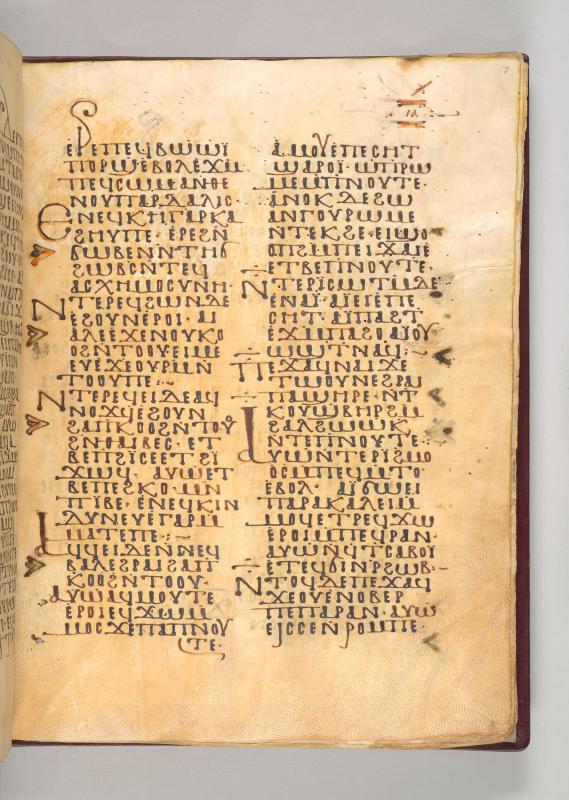 7
ⲓⲁ
ⲉⲣⲉⲡⲉϥⲃⲱⲱⲓ
ⲡⲟⲣϣⲉⲃⲟⲗⲉϫⲙ
ⲡⲉϥⲥⲱⲙⲁⲛⲑⲉ
ⲛⲟⲩⲡⲁⲣⲇⲁⲗⲓⲥ·
ⲉⲛⲉϥⲕⲏⲅⲁⲣⲕⲁ
ϩⲏⲩⲡⲉ· ⲉⲣⲉϩⲛ
ϭⲱⲃⲉⲛⲛⲧⲏϭ
ϩⲱⲃⲥⲛⲧⲉϥ
ⲁⲥⲭⲏⲙⲟⲥⲩⲛⲏ·
ⲛⲧⲉⲣⲉϥϩⲱⲛⲇⲉ
ⲉϩⲟⲩⲛⲉⲣⲟⲓ· ⲁⲓ
ⲁⲗⲉⲉϫⲉⲛⲟⲩⲕⲟ
ⲟϩⲛⲧⲟⲟⲩⲉⲓⲙⲉ
ⲉⲩⲉϫⲉⲟⲩⲣⲙⲛ
ⲧⲟⲟⲩⲡⲉ:
ⲛⲧⲉⲣⲉϥⲉⲓⲇⲉⲁϥ
ⲛⲟϫϥⲉϩⲟⲩⲛ
ϩⲁⲡⲕⲟⲟϩⲛⲧⲟⲟⲩ
ϩⲛⲑⲁⲓⲃⲉⲥ· ⲉⲧ
ⲃⲉⲡϩⲓⲥⲉⲉⲧϩⲓ
ϫⲱϥ· ⲁⲩⲱⲉⲧ
ⲃⲉⲡⲉϩⲕⲟ· ⲙⲛ
ⲡⲓⲃⲉ· ⲉⲛⲉϥⲕⲓⲛ
ⲇⲩⲛⲉⲩⲉⲅⲁⲣⲙ
ⲙⲁⲧⲉⲡⲉ:
ⲁϥϥⲉⲓⲇⲉⲛⲛⲉϥ
ⲃⲁⲗⲉϩⲣⲁⲓϩⲁⲡ
ⲕⲟⲟϩⲛⲧⲟⲟⲩ·
ⲁⲩⲱⲁϥⲙⲟⲩⲧⲉ
ⲉⲣⲟⲓⲉϥϫⲱⲙ
ⲙⲟⲥ·ϫⲉⲡⲁⲡⲛⲟⲩ
ⲧⲉ·
ⲁⲙⲟⲩⲉⲡⲉⲥⲏⲧ
ϣⲁⲣⲟⲓ· ⲱⲡⲣⲱ
ⲙⲉⲙⲡⲛⲟⲩⲧⲉ·
ⲁⲛⲟⲕⲇⲉϩⲱ
ⲁⲛⲅⲟⲩⲣⲱⲙⲉ
ⲛⲧⲉⲕϩⲉ· ⲉⲓⲟ
ⲟⲡϩⲙⲡⲉⲓϫⲁⲓⲉ
ⲉⲧⲃⲉⲡⲛⲟⲩⲧⲉ·
ⲛⲧⲉⲣⲓⲥⲱⲧⲙⲇⲉ
ⲉⲛⲁⲓ· ⲁⲓⲉⲓⲉⲡⲉ
ⲥⲏⲧ· ⲁⲓⲡⲁϩⲧ
ⲉϫⲙⲡⲁϩⲟⲁⲓⲟⲩ
ⲱϣⲧⲛⲁϥ·
ⲡⲉϫⲁϥⲛⲁⲓϫⲉ
ⲧⲱⲟⲩⲛⲉϩⲣⲁⲓ
ⲡⲁϣⲏⲣⲉ· ⲛⲧ
ⲕⲟⲩϣⲃⲏⲣϩⲙ
ϩⲁⲗϩⲱⲱⲕ
ⲛⲧⲉⲡⲛⲟⲩⲧⲉ·
ⲁⲩⲱⲛⲧⲉⲣⲓϩⲙⲟ
ⲟⲥⲙⲡⲉϥⲙⲧⲟ
ⲉⲃⲟⲗ· ⲁⲓϭⲱⲉⲓ
ⲡⲁⲣⲁⲕⲁⲗⲉⲓⲙ
ⲙⲟϥⲉⲧⲣⲉϥϫⲱ
ⲉⲣⲟⲓⲙⲡⲉϥⲣⲁⲛ·
ⲁⲩⲱⲛϥⲧⲥⲁⲃⲟⲓ
ⲉⲧⲉϥϭⲓⲛⲣϩⲱⲃ·
ⲛⲧⲟϥⲇⲉⲡⲉϫⲁϥ
ϫⲉⲟⲩⲉⲛⲟⲃⲉⲣ
ⲡⲉⲡⲁⲣⲁⲛ· ⲁⲩⲱ
ⲉⲓⲥⲥⲉⲛⲣⲟⲙⲡⲉ·